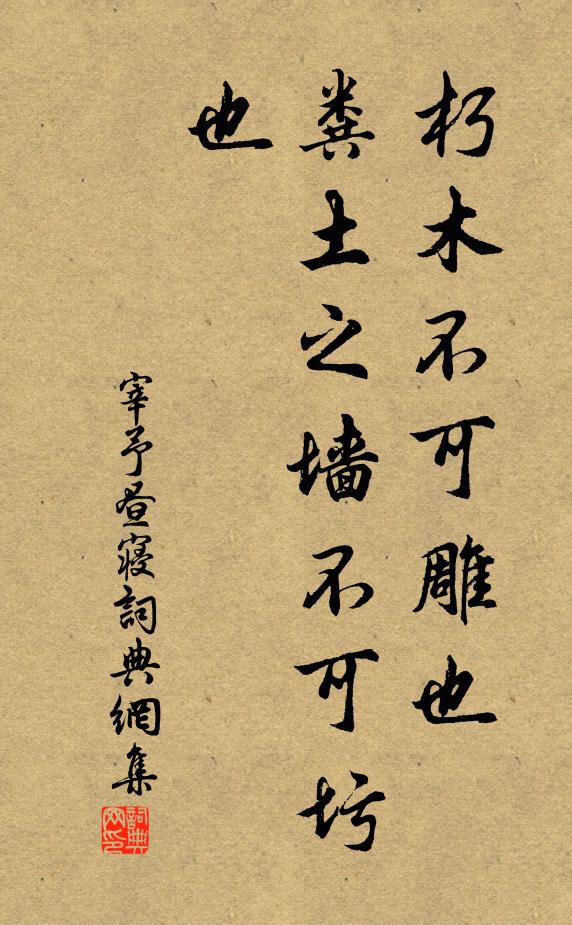 朽木不可雕也
糞土之墙不可圬
也
宰予晝寢詞典網集
詞典网印